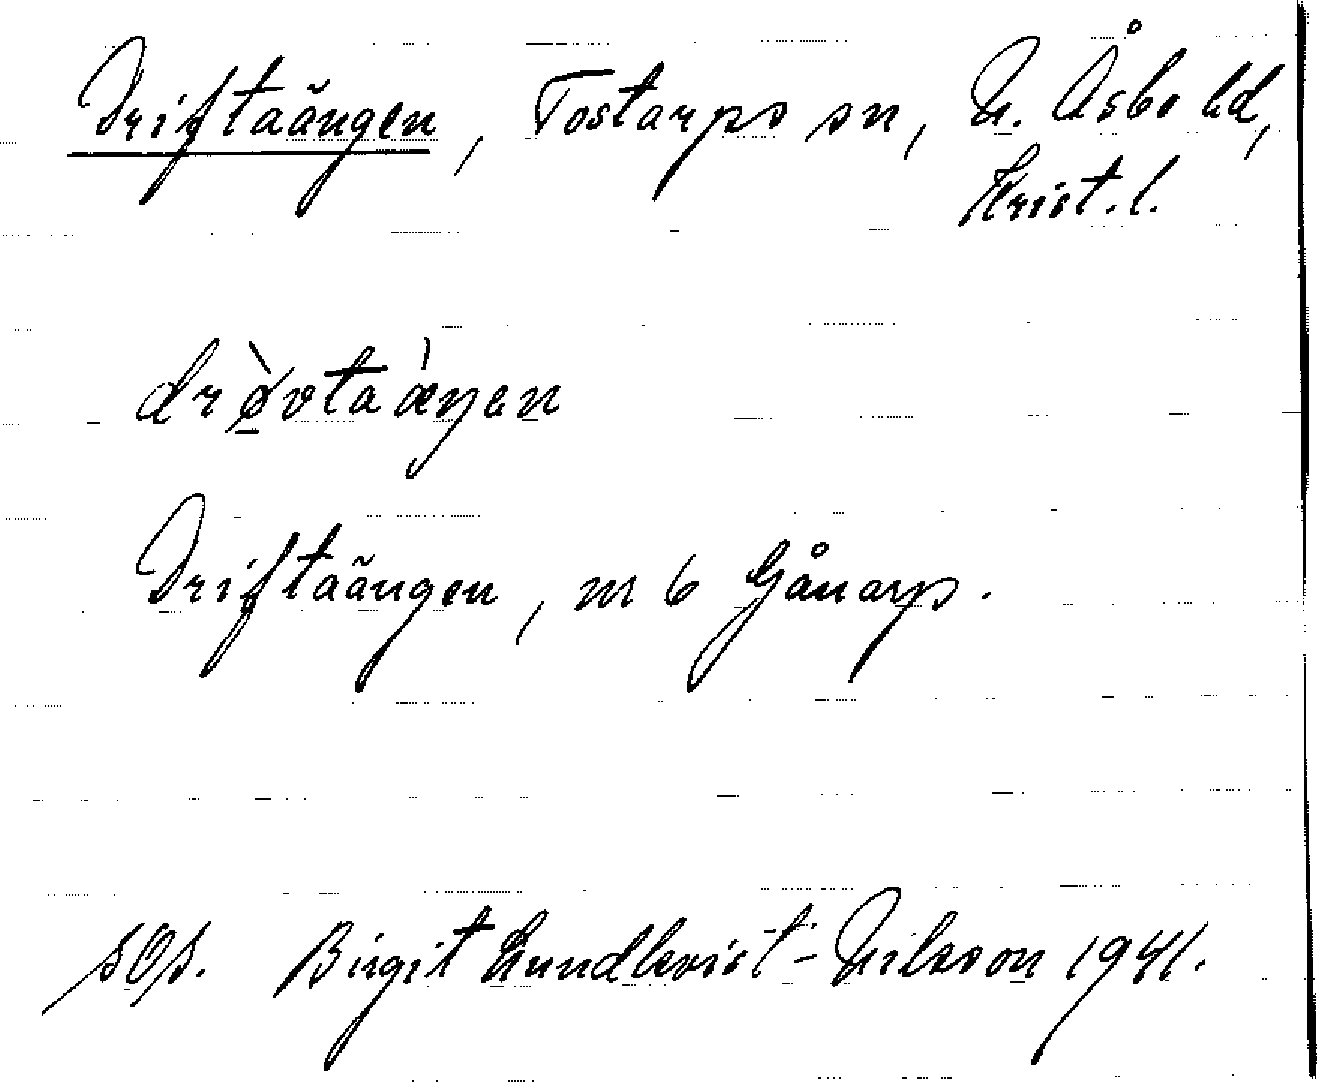 Driftaängen, Tostarps sn, N. Åsbo hd,
Krist. l.
drø̀vtaæ̀ŋen
Driftaängen, m 6 Gånarp.
SOS. Birgit Lundkvist-Nilsson 1941.